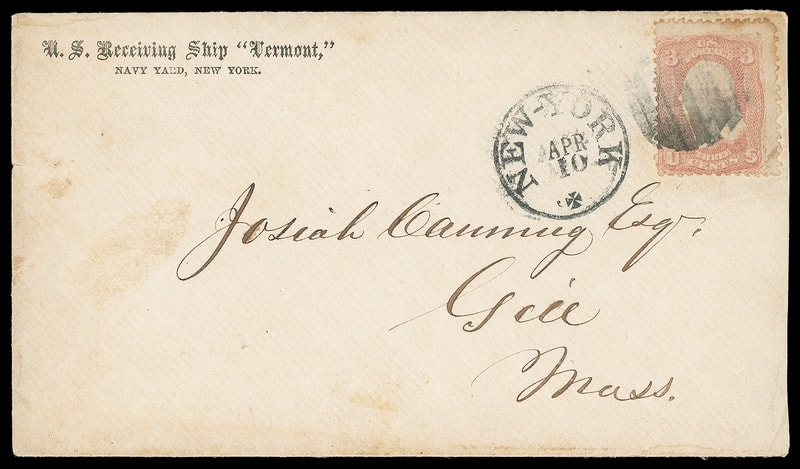 U. S. Receiving Ship "Vermont,"
NAVY YARD, NEW YORK.
NEW-YORK
APR
10
3 3
U S
CENTS
Josiah Canning Esq.
Gill
Mass.